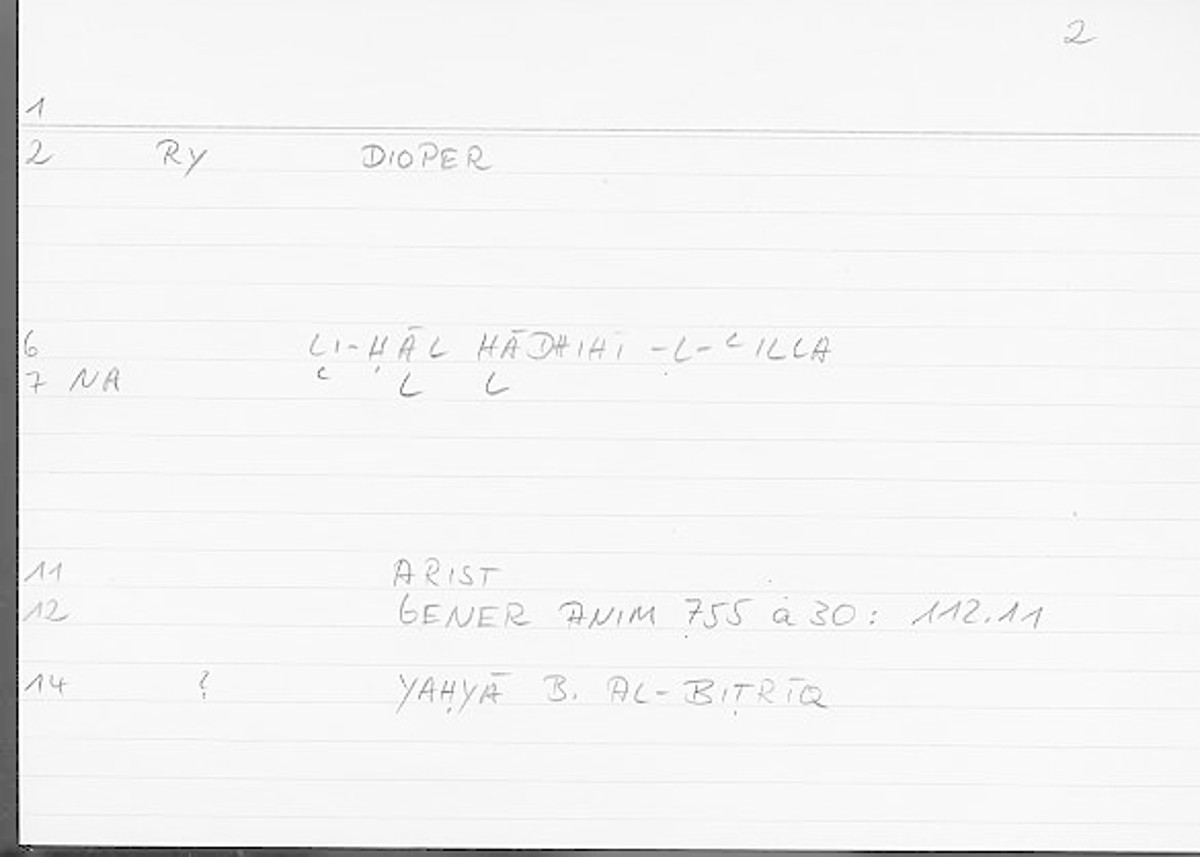 2
1
2 RY DIOPER
6 LI-ḤĀL HĀDHIHI -L-ʿILLA
7 NA c L L
11 ARIST
12 GENER ANIM 755 a 30: 112.11
14 ? YAḤYĀ B. AL-BIṬRĪQ